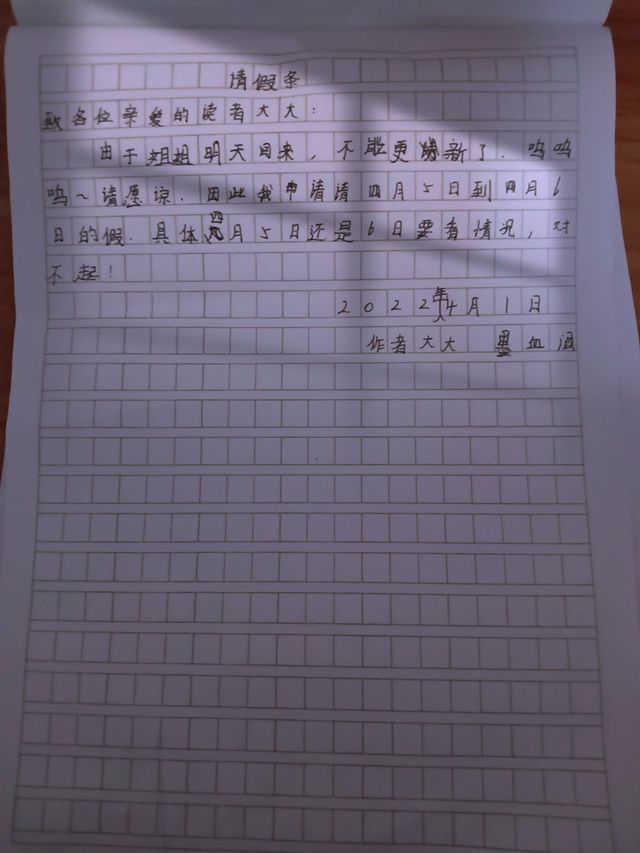 请假条
致各位亲爱的读者大大：
由于姐姐明天回来，不能更新了.呜呜
呜～请愿谅.因此我申请请四月5日到四月6
日的假.具体四月5日还是6日要看情况，对
不起！
2022年4月1日
作者大大 墨血泪